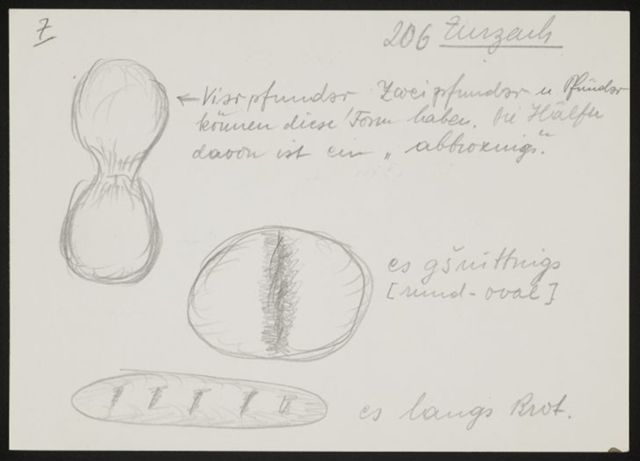 Z
206 Zurzach
← Vierpfünder Zweipfünder u Pfünder
können diese Form haben. Die Hälfte
davon ist ein „abbroxnigs".
es gšnittnigs
[rund-oval]
es langs Brot.